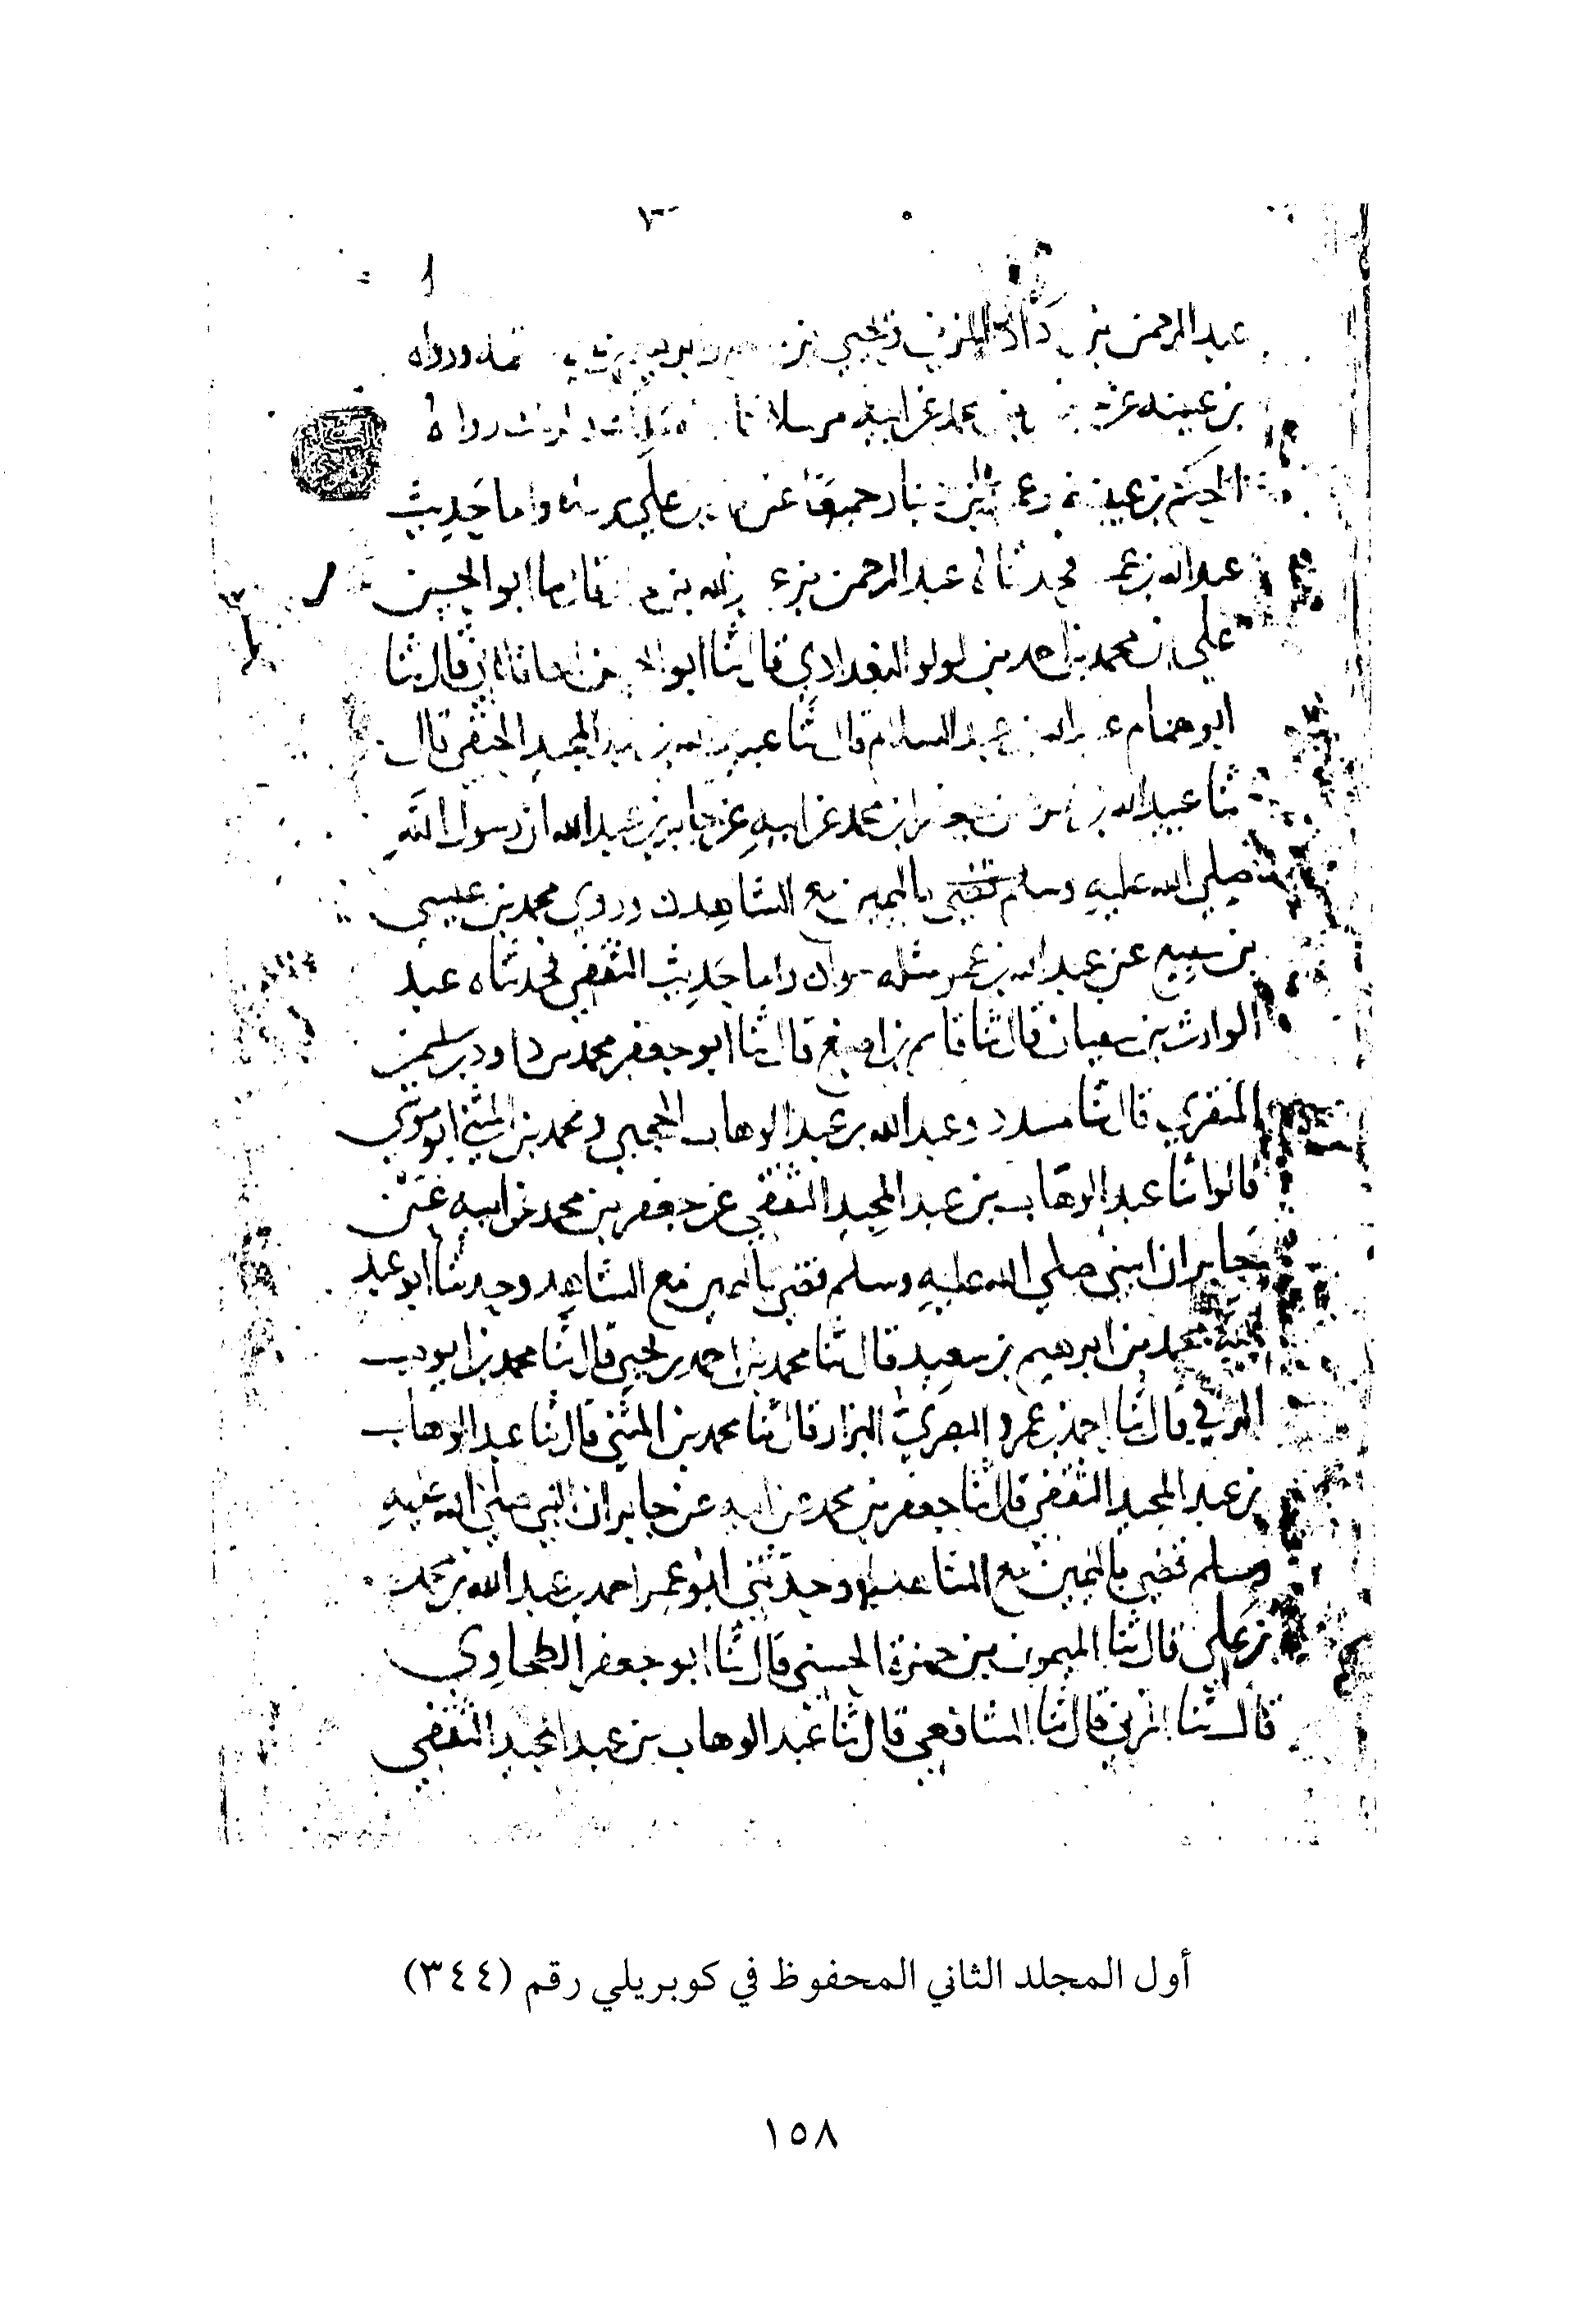 عبد الرحمن بن
بن عيينه عن محمد عن ابيه مرسلا
الحكم بن عيينه جميعا عن علي واما حديث
عبد الله بن عمر فحدثناه عبد الرحمن بن ابو الحسين
علي بن محمد بن احمد بن لولو البغدادي قال ثنا ابو قال ثنا
ابو همام عبد السلام قال ثنا المجيد الحنفي قال
ثنا عبيد الله بن محمد عن ابيه عن جابر بن عبد الله ان رسول الله
صلى الله عليه وسلم قضى باليمين مع الشاهد وروى محمد بن عيسى
بن سميع عن عبيد الله بن عمر مثله سوا واما حديث الثقفي فحدثناه عبد
الوارث بن سفيان قال ثنا قاسم بن اصبغ قال ثنا ابو جعفر محمد بن داود بن سليمن
المنقري قال ثنا مسدد وعبد الله بن عبد الوهاب الحجبي ومحمد بن المثنى ابو موسى
قالوا ثنا عبد الوهاب بن عبد المجيد الثقفي عن جعفر بن محمد عن ابيه عن
جابر ان النبي صلى الله عليه وسلم قضى باليمين مع الشاهد وحدثنا ابو عبد
الله محمد بن ابرهيم بن سعيد قال ثنا محمد بن احمد بن يحيى قال ثنا محمد بن ايوب
قال ثنا احمد بن عمرو البصري البزار قال ثنا محمد بن المثنى قال ثنا عبد الوهاب
بن عبد المجيد الثقفي قال ثنا جعفر بن محمد عن ابيه عن جابر ان النبي صلى الله عليه
وسلم قضى باليمين مع الشاهد وحدثني ابو عمر احمد بن عبد الله بن محمد
بن علي قال ثنا الميمون بن حمزة الحسيني قال ثنا ابو جعفر الطحاوي
قال ثنا المزني قال ثنا الشافعي قال ثنا عبد الوهاب بن عبد المجيد الثقفي
أول المجلد الثاني المحفوظ في كوبريلي رقم (٣٤٤)
١٥٨